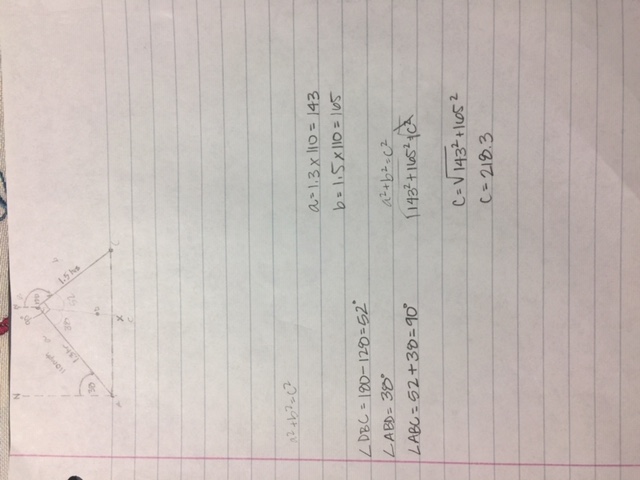 N
38
1.3hr
38
52
1.5hrs
a²+b²=c²
a=1.3x110=143
b=1.5x110=165
∠DBC=180-128=52°
∠ABD=38°
∠ABC=52+38=90°
a²+b²=c²
√143²+165²=√c²
c=√143²+165²
c=218.3